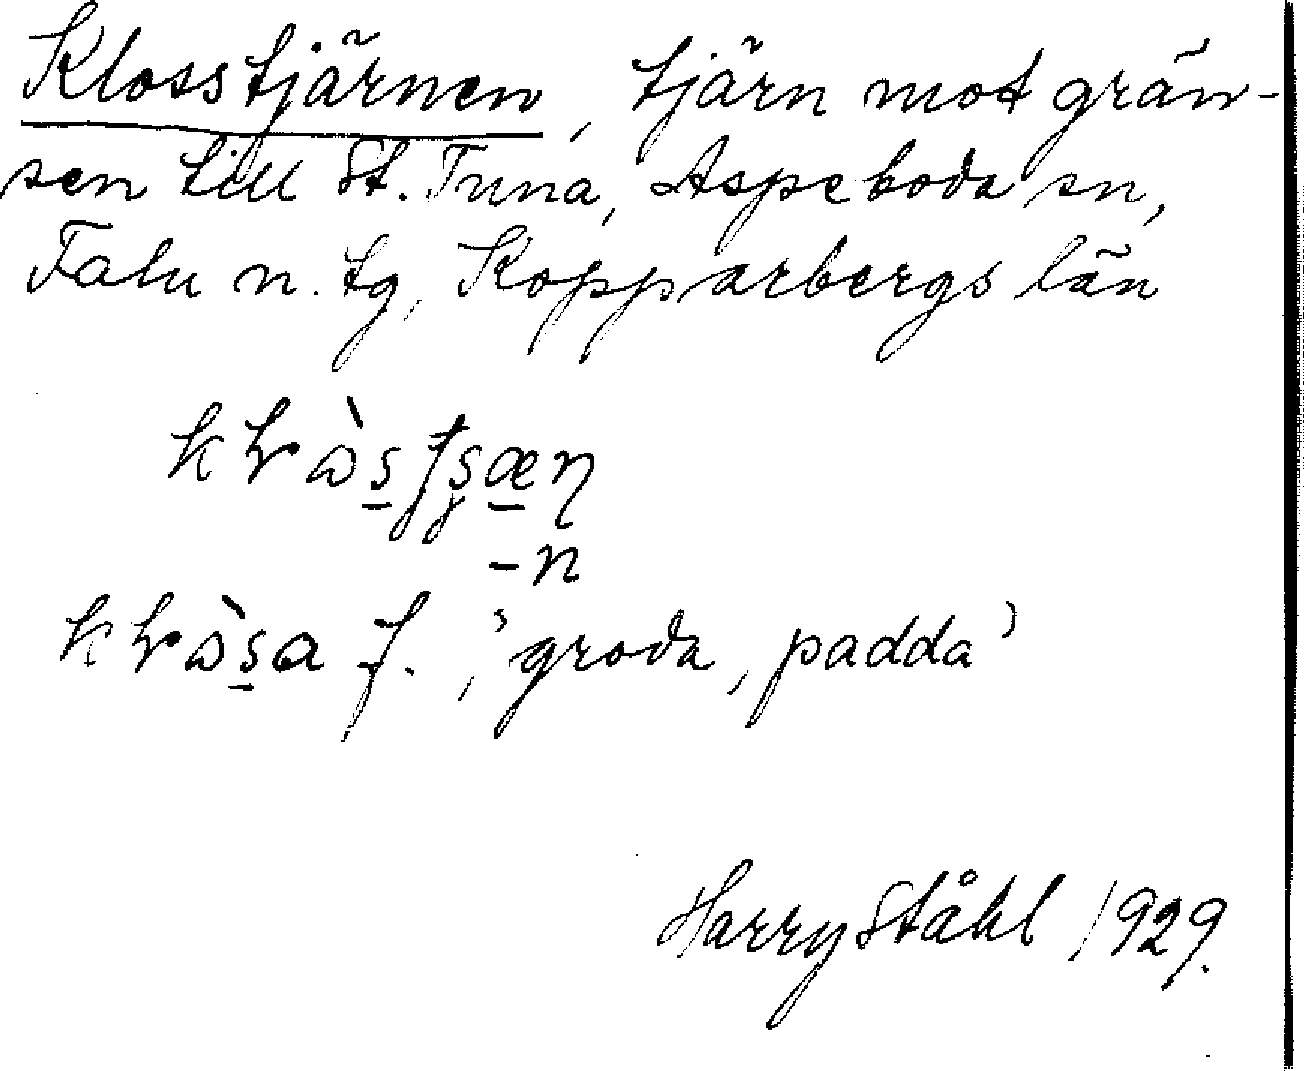 Klosstjärnen, tjärn mot grän-
sen till St. Tuna, Aspeboda sn,
Falu n. tg, Kopparbergs län
-n
f., 'groda, padda'
Harry Ståhl 1929.